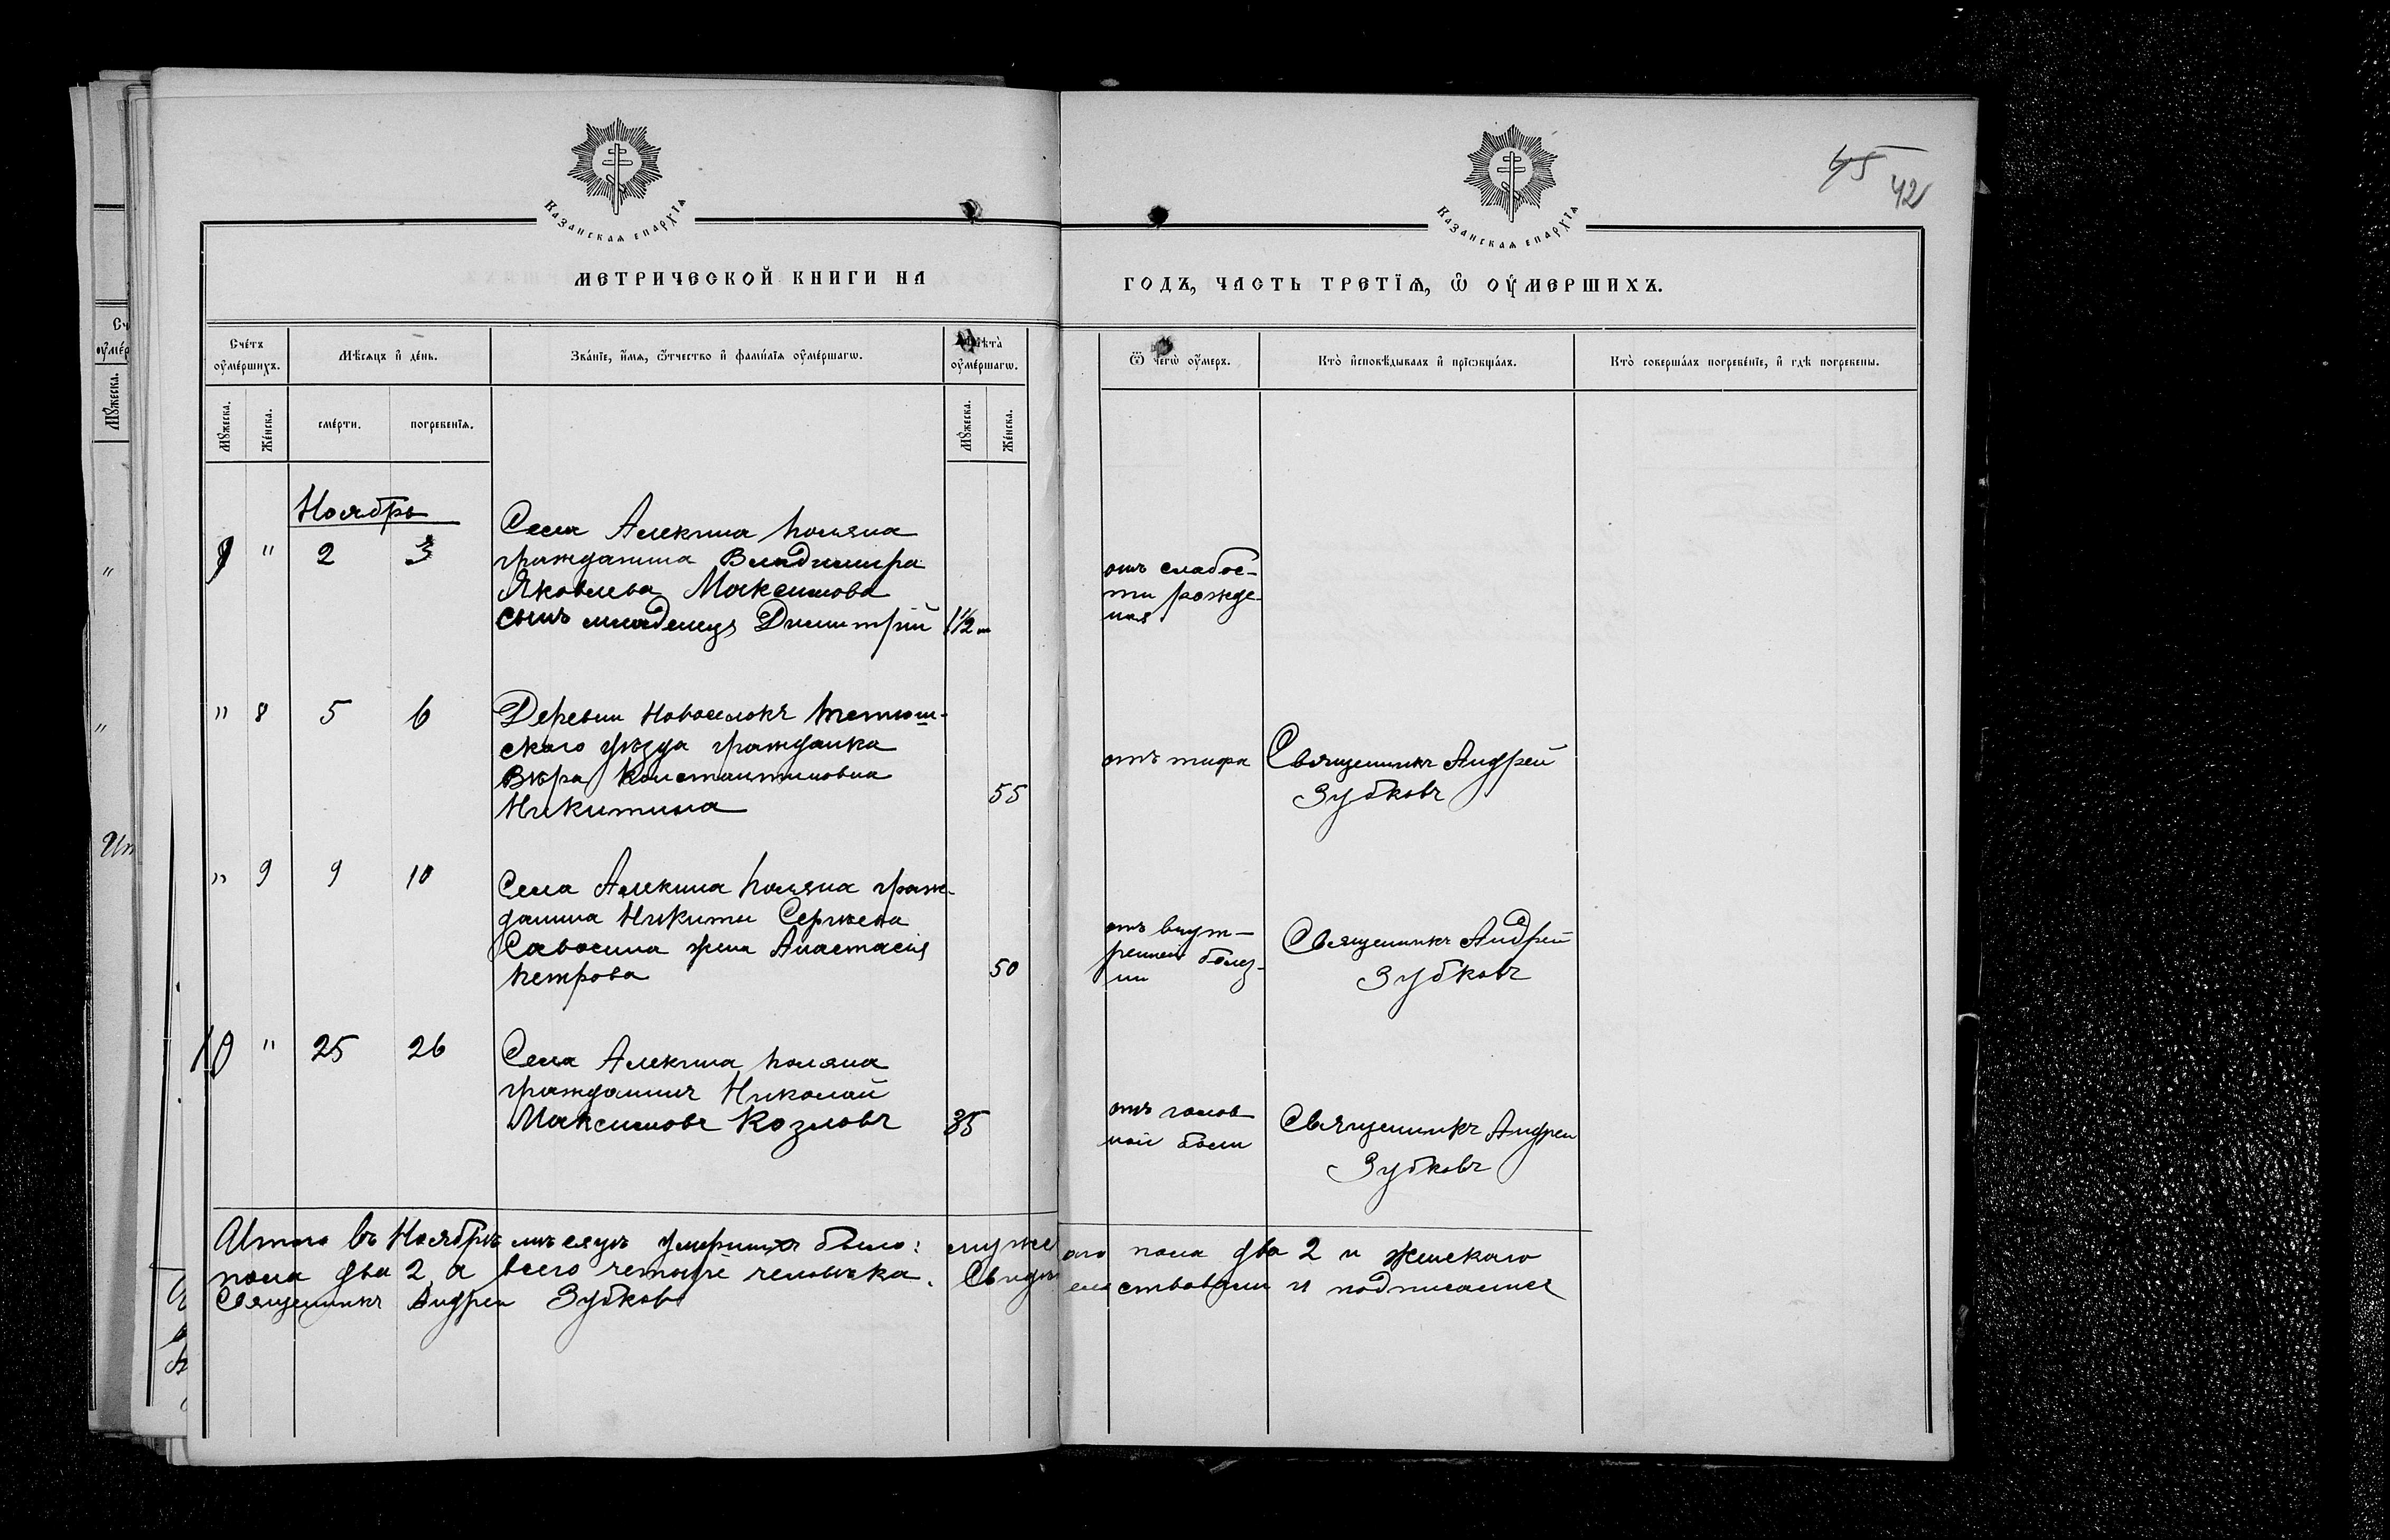 45
42
Казанская епархїѧ
Казанская епархїѧ
МЕТРИЧЕСКОЙ КНИГИ НА
ГОДЪ, ЧАСТЬ ТРЕТЇѦ, Ѡ ОУМЕРШИХЪ.
Счетъ оумершихъ.
Мѣсяцъ и день.
Званїе, имѧ, ѿтчество и фамилїѧ оумершагѡ.
Лѣта оумершагѡ.
Ѿ чегѡ оумеръ.
Кто исповѣдывалъ и прїѡбщалъ.
Кто совершалъ погребенїе, и гдѣ погребены.
Мꙋжеска.
Женска.
смерти.
погребенїѧ.
Мꙋжеска.
Женска.
Ноябрь
9 " 2 3
Села Алекина Поляна
гражданина Владимира
Яковлева Максимова
сынъ младенецъ Димитрій 1½ м
отъ слабос-
ти рожде-
ния
" 8 5 6
Деревни Новоселокъ Тетюш-
скаго уѣзда гражданка
Вѣра Константиновна
Никитина
55
отъ тифа
Священникъ Андрей
Зубковъ
" 9 9 10
Села Алекина Поляна граж-
данина Никиты Сергѣева
Савосина жена Анастасія
Петрова
50
отъ внут-
ренней болез-
ни
Священникъ Андрей
Зубковъ
10 " 25 26
Села Алекина Поляна
гражданинъ Николай
Максимовъ Козловъ
35
отъ голов
ной боли
Священникъ Андрей
Зубковъ
Итого въ Ноябрѣ мѣсяцѣ умершихъ было: мужескаго пола два 2 и женскаго
пола два 2 а всего четыре человѣка. Свидѣтельствовали и подписались
Священникъ Андрей Зубковъ